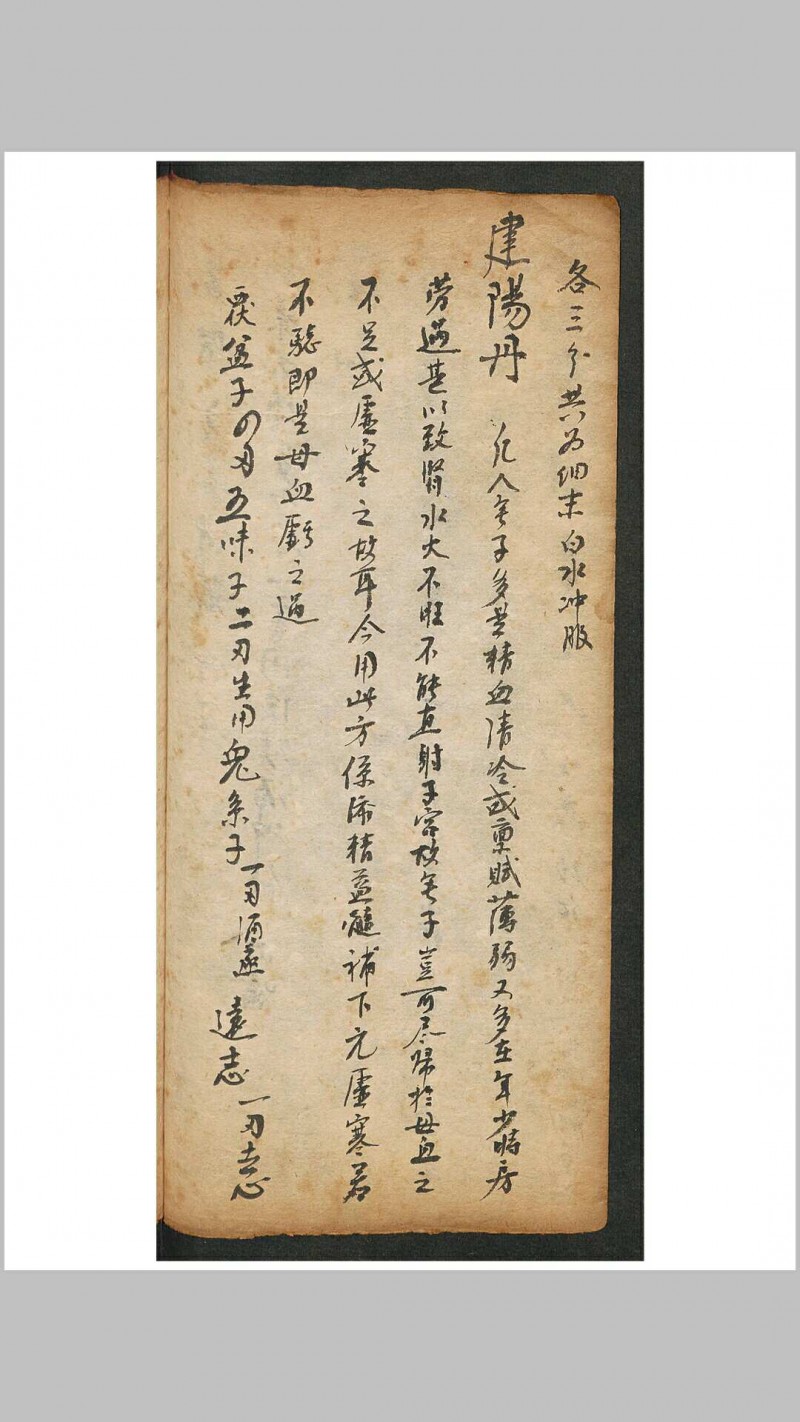 各三分共为细末白水冲服
建陽丹 凡人無子多是精血清冷或禀赋薄弱又多在年少時房
劳過甚以致腎水火不旺不能直射子宮故無子豈可尽歸於母血之
不足或虛寒之故耳今用此方保添精益髓補下元虛寒若
不驗即是母血虧之過
覆盆子四刄五味子二刄生用兔糸子一刄酒蒸 遠志一刄去心